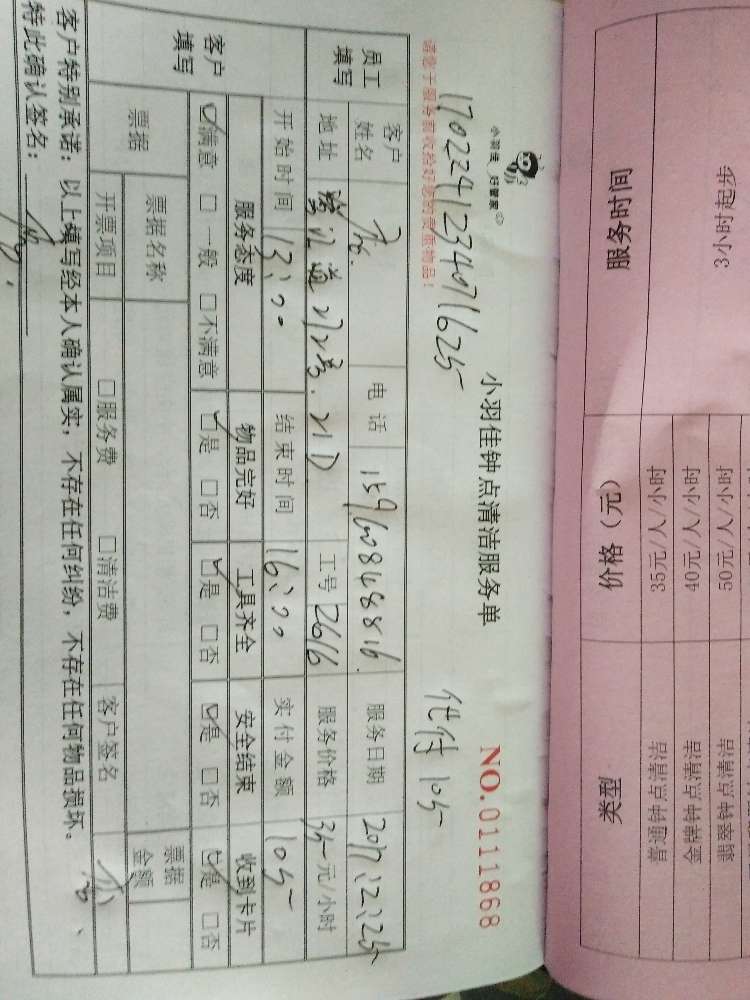 服务时间 价格（元） 类型
3小时起步
35元/人/小时 普通钟点清洁
40元/人/小时 金牌钟点清洁
50元/人/小时 翡翠钟点清洁
小羽佳 好管家
小羽佳钟点清洁服务单 NO.0111868
代付 105
请您于服务前收拾好您的贵重物品！
员工填写
客户姓名 电话 服务日期 2017.2.25
地址 工号 2616 服务价格 35元/小时
开始时间 13:00 结束时间 16:00 实付金额 105
客户填写
服务态度 物品完好 工具齐全 安全结束 收到卡片
☑满意 □一般 □不满意 ☑是 □否 ☑是 □否 ☑是 □否 ☑是 □否
票据 票据名称 票据金额
开票项目 □服务费 □清洁费 客户签名
客户特别承诺：以上填写经本人确认属实，不存在任何纠纷，不存在任何物品损坏。
特此确认签名：